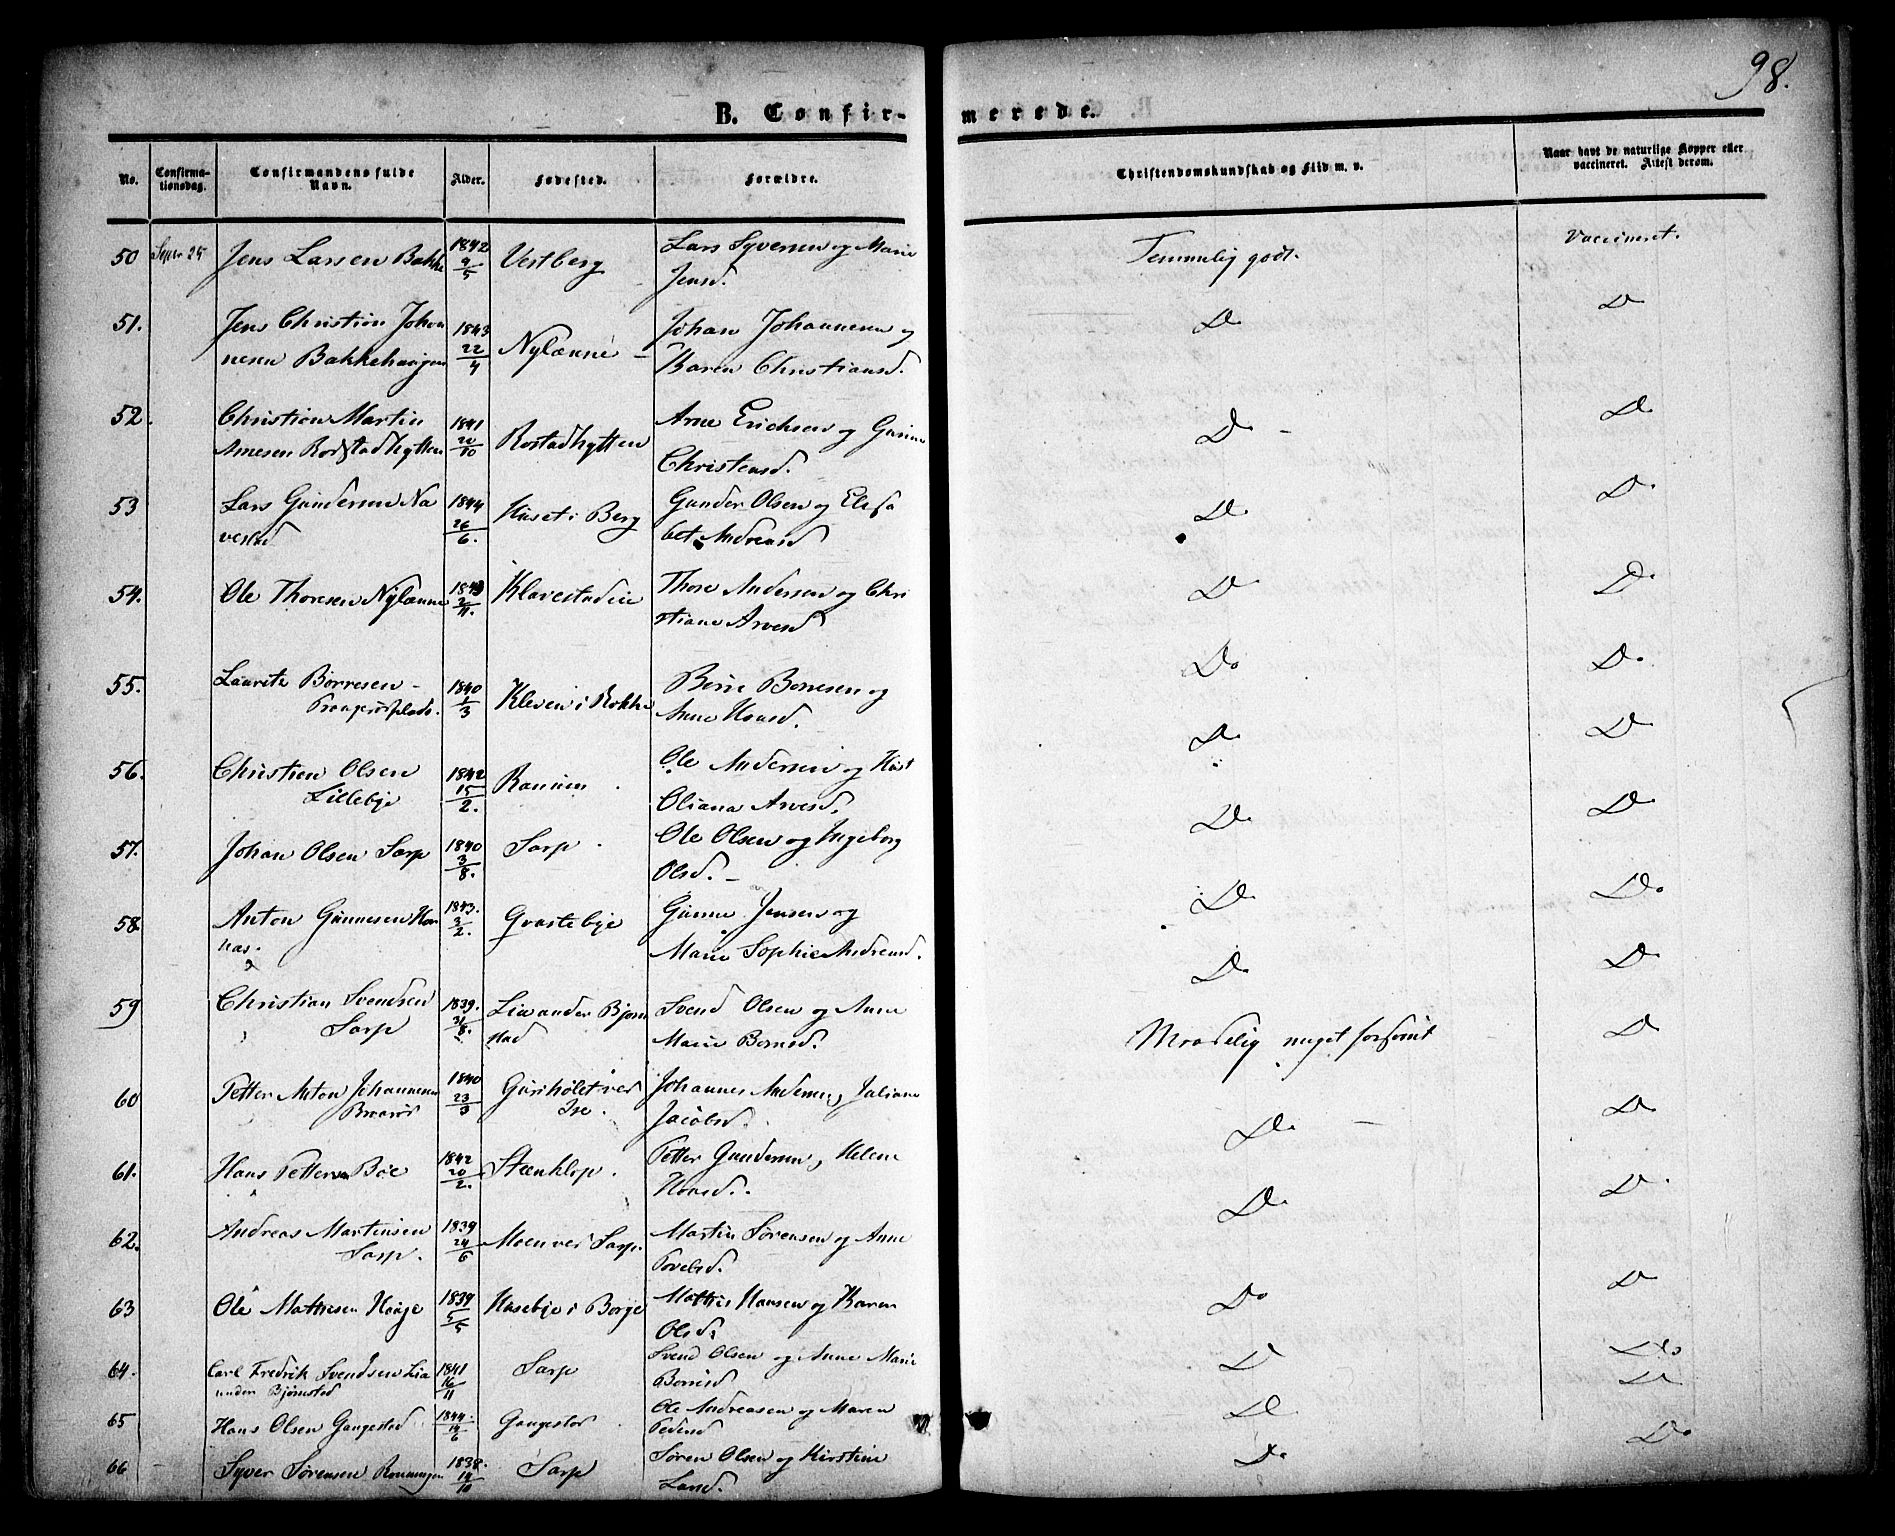 98.
B. Confir-merede.
No. Confirma-tionsdag. Confirmandens fulde Navn. Alder. Fødested. Forældre. Christendomskundskab og Flid m. v. Naar havt de naturlige Kopper eller vaccineret. Attest derom.
50 Septr 25 Jens Larsen Bakke 1842 9/5 Vestberg Lars Syversen og Marie Jensd. Temmelig godt. Vaccineret.
51. Jens Christian Johannesen Bakkehaugen 1843 22/4 Nylænne Johan Johannesen og Karen Christiansd. Do Do
52. Christian Martin Arnesen Rodstadhytten 1841 20/10 Rostadhytten Arne Erichsen og Christensd. Do Do
53 Lars Gundersen Navestad 1844 26/6. Huset i Berg Gunder Olsen og Elisabet Andreasd Do Do
54. Ole Thoresen Nylænne 1843 2/11. Klavestadie Thore Andersen og Christiane Arvesd Do Do
55. Lauritz Børresen 1840 1/3 Kleven i Rokke Børre Børresen og Anne Hansd. Do Do
56. Christian Olsen Lillebye 1842 15/2. Ole Andersen og Oliana Arvesd. Do Do
57. Johan Olsen Sarp 1840 3/8. Sarp Ole Olsen og Ingeborg Olsd. Do Do
58. Anton Gunnesen 1843. 3/2. Gunne Jensen og Marie Sophie Andreasd. Do Do
59 Christian Svendsen Sarp 1839. 31/8. Lia under Bjørnstad Svend Olsen og Anne Marie Børresd. Do Do
60 Petter Anton Johannesen 1840 23/3 ved Ise. Johannes Andersen, Juliane Jacobsd. Maadelig meget forsømt Do
61. Hans Pettersen Bøe 1842 20/2. Steenklop. Petter Gundersen, Helene Hansd. Do Do
62. Andreas Martinsen Sarp. 1839 24/6 Moen ved Sarp. Martin Sørensen og Anne Povelsd. Do Do
63 Ole Mathisen Hauge 1839 5/5 Husebye i Borge Mathis Hansen og Karen Olsd. Do Do
64. Carl Fredrik Svendsen Lia under Bjørnstad 1841 16/11 Sarp Svend Olsen og Anne Marie Børresd Do Do
65 Hans Olsen Gangestad 1844. 14/6 Gangestad Ole Andreasen og Maren Pedersd Do Do
66 Syver Sørensen Rønningen 1838. 14/10 Sarp Søren Olsen og Kirstine Larsd. Do Do